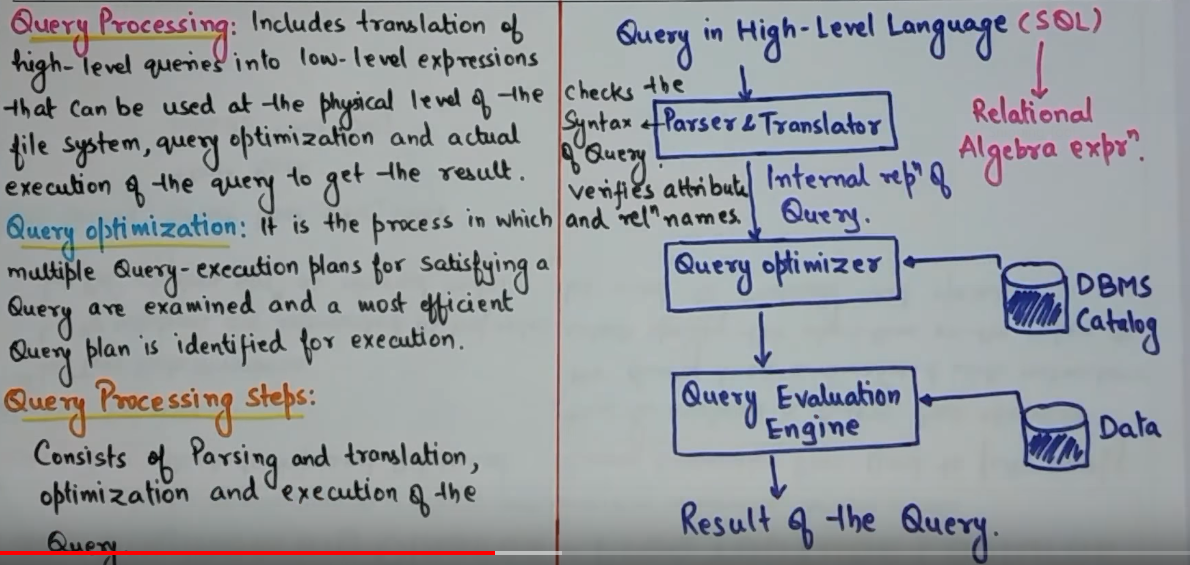 Query Processing: Includes translation of
high-level queries into low-level expressions
that can be used at the physical level of the
file system, query optimization and actual
execution of the query to get the result.
Query optimization: It is the process in which
multiple Query-execution plans for satisfying a
Query are examined and a most efficient
Query plan is identified for execution.
Query Processing steps:
Consists of Parsing and translation,
optimization and execution of the
Query
Query in High-Level Language (SQL)
Relational
Algebra exprⁿ.
checks the
Syntax
of Query
verifies attribute
and relⁿ names.
Parser & Translator
Internal repⁿ of
Query.
Query optimizer
DBMS
Catalog
Query Evaluation
Engine
Data
Result of the Query.